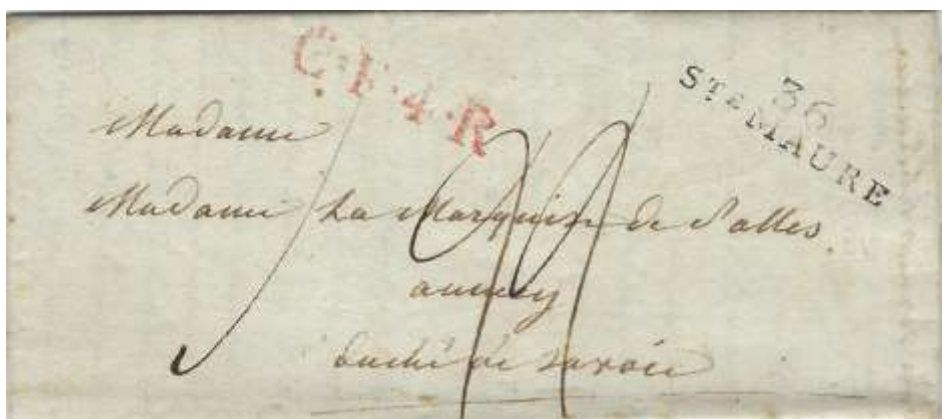 C.F.4.R
36
STE MAURE
Madame
Madame La Marquise de Salles.
annecy
duché de Savoie